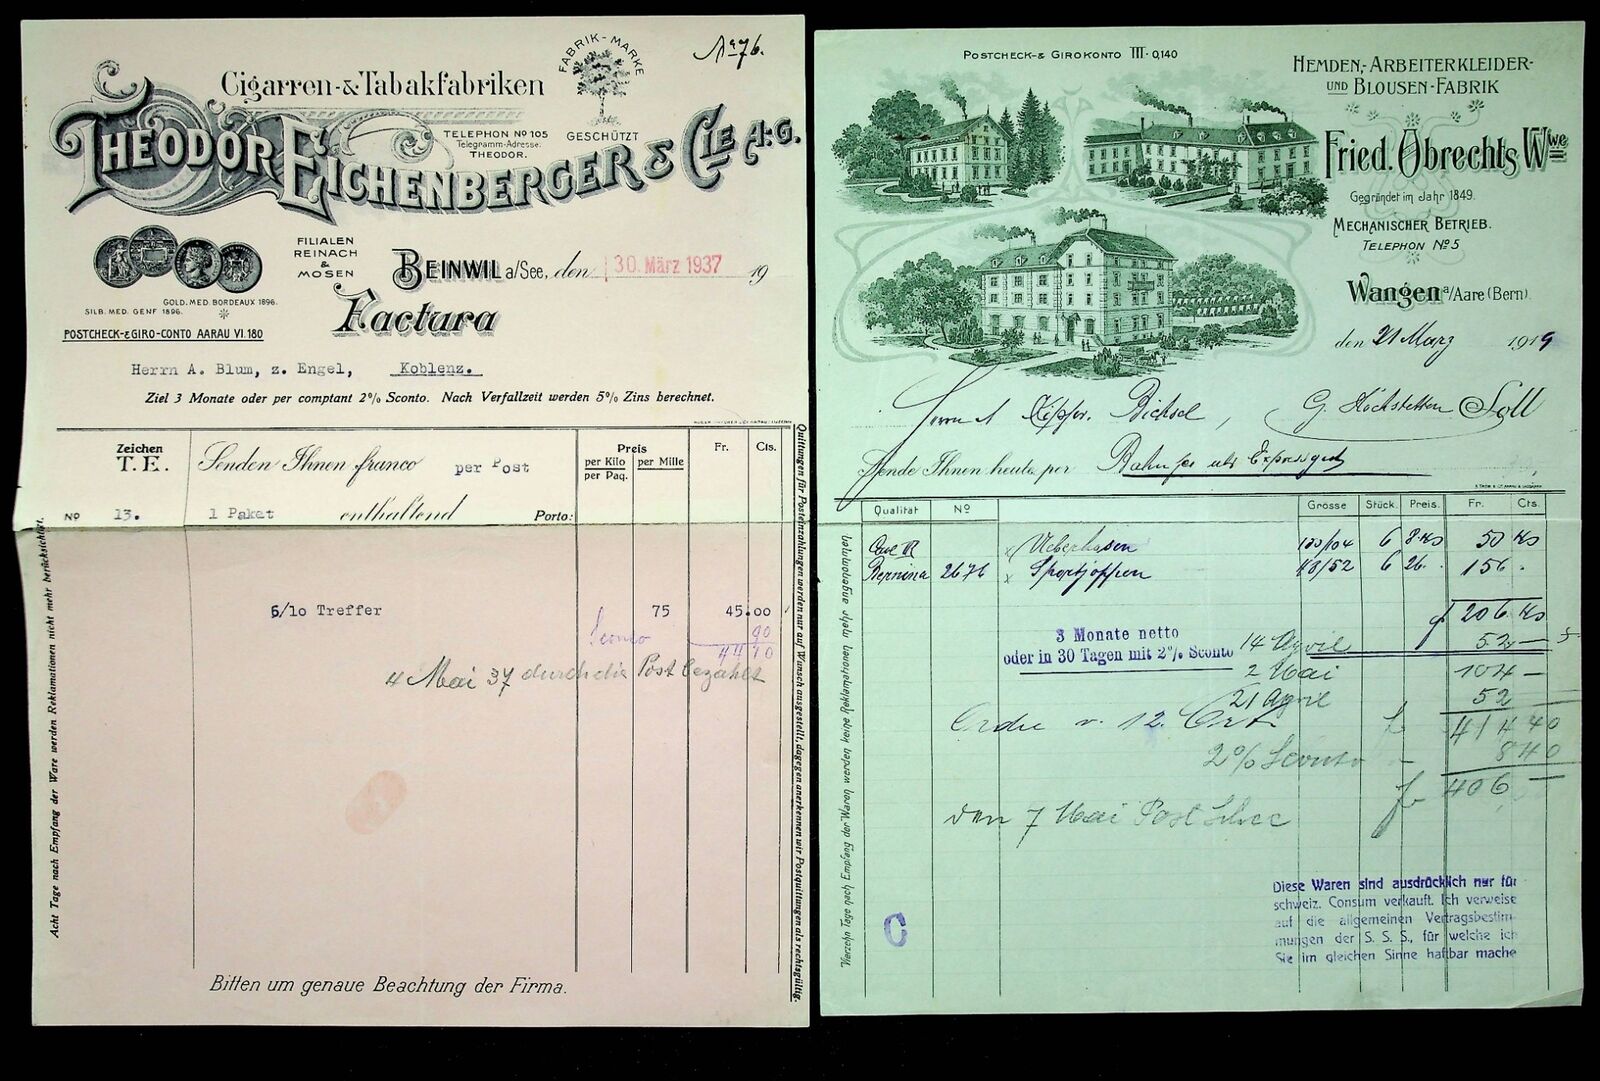 Nº 76.
Cigarren-&Tabakfabriken
FABRIK-MARKE
GESCHÜTZT
TELEPHON Nº 105
Telegramm-Adresse:
THEODOR.
THEODOR EICHENBERGER & CIE A.-G.
FILIALEN
REINACH
&
MOSEN
BEINWIL a/See, den 30. März 1937 19
GOLD. MED. BORDEAUX 1896.
SILB. MED. GENF 1896.
Factura
POSTCHECK-&GIRO-CONTO AARAU VI. 180
Herrn A. Blum, z. Engel, Koblenz.
Ziel 3 Monate oder per comptant 2% Sconto. Nach Verfallzeit werden 5% Zins berechnet.
Zeichen
T. E.
Senden Ihnen franco per Post
Preis
per Kilo per Mille
per Paq.
Fr. Cts.
Nº 13. 1 Paket enthaltend Porto:
6/10 Treffer 75 45.00
Sconto 90
44 10
4 Mai 37 durch die Post bezahlt
Bitten um genaue Beachtung der Firma.
Acht Tage nach Empfang der Ware werden Reklamationen nicht mehr berücksichtigt.
Quittungen für Posteinzahlungen werden nur auf Wunsch ausgestellt, dagegen anerkennen wir Postquittungen als rechtsgültig.
POSTCHECK-& GIROKONTO III·0,140
HEMDEN,- ARBEITERKLEIDER-
UND BLOUSEN-FABRIK
Fried. Obrechts Wwe
Gegründet im Jahr 1849.
MECHANISCHER BETRIEB.
TELEPHON Nº 5
Wangen a/Aare (Bern).
den 21 März 1919
Herrn A Bichsel, G. Höchstetten Soll
Sende Ihnen heute per
Qualität Nº Grösse Stück. Preis. Fr. Cts.
Ueberhosen 100/104 6 8.40 50 40
Bernina 2676 Sportjoppen 48/52 6 26. 156.
fr 206 40
3 Monate netto
oder in 30 Tagen mit 2% Sconto
14 April 52 —
2 Mai 104 —
21 April 52
Ordre v. 12. Ort. fr 414 40
2% Sconto 8 40
fr 406
den 7 Mai Post
Diese Waren sind ausdrücklich nur für
schweiz. Consum verkauft. Ich verweise
auf die allgemeinen Vertragsbestim-
mungen der S. S. S., für welche ich
Sie im gleichen Sinne haftbar mache
C
Vierzehn Tage nach Empfang der Waren werden keine Reklamationen mehr angenommen.